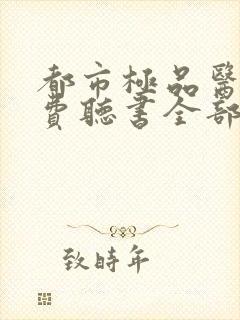 都市極品醫
費聽書全部
致時年